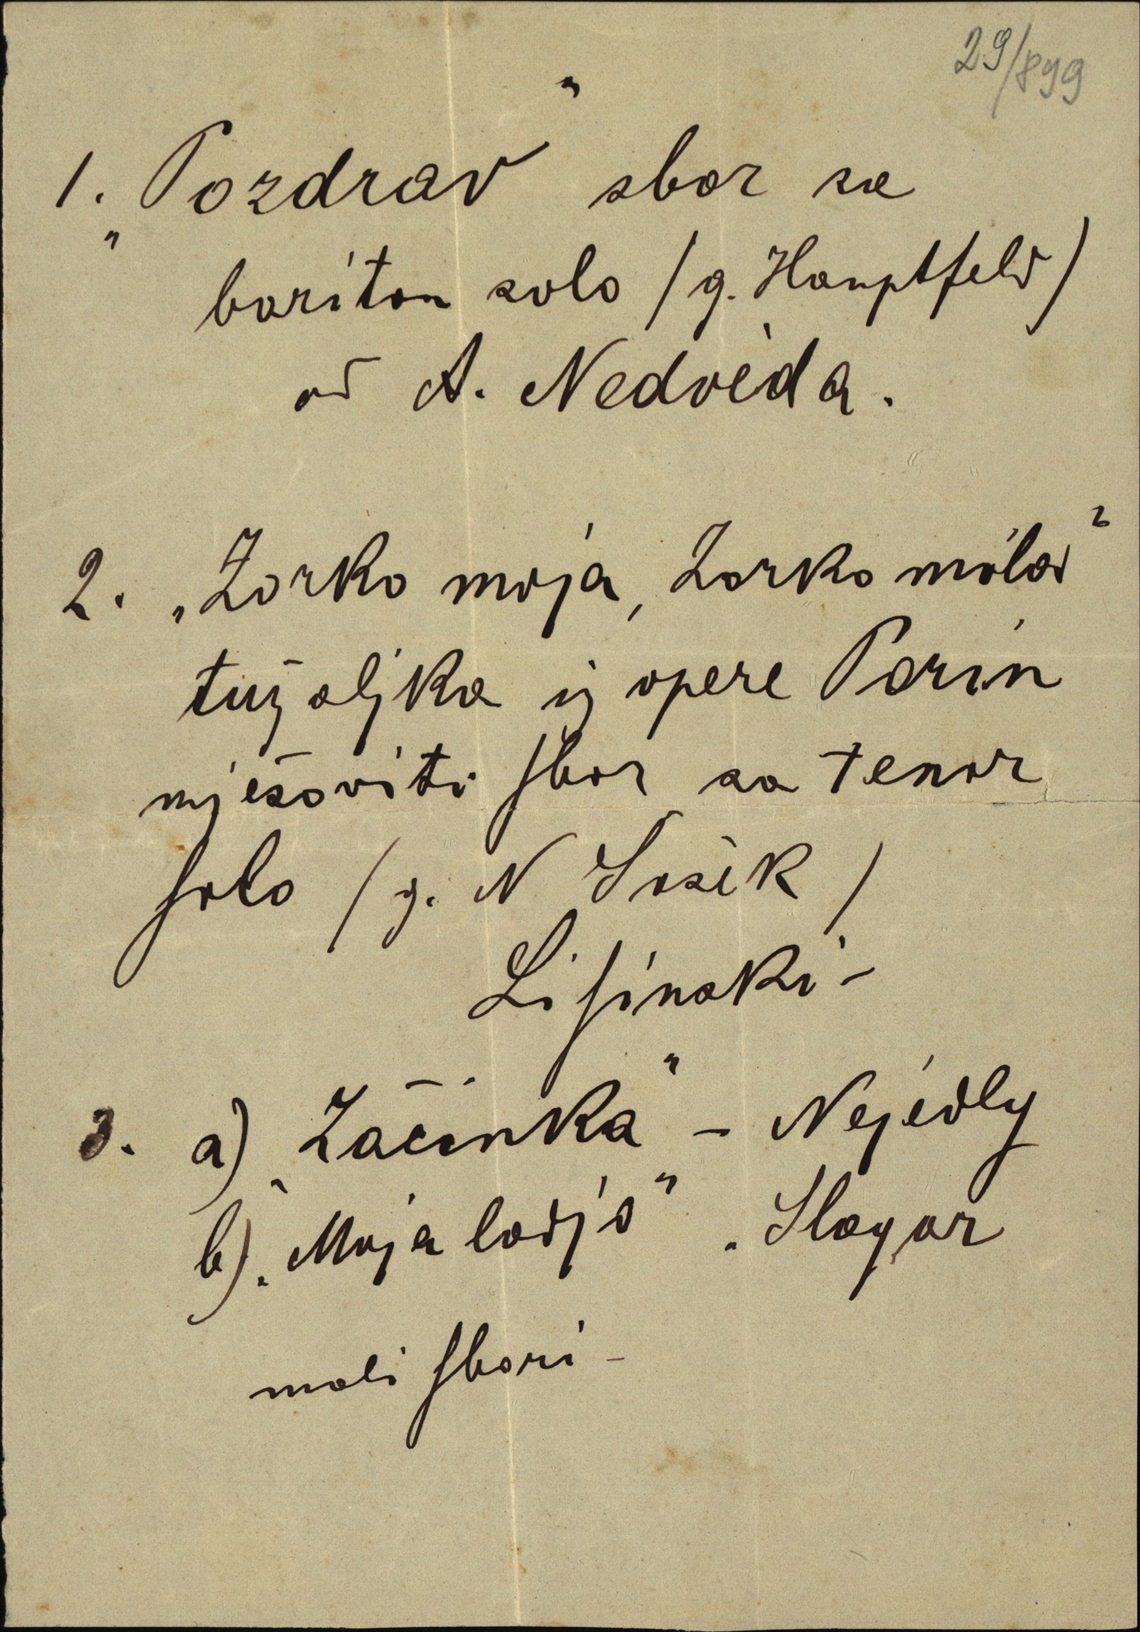 29/899
1. „Pozdrav" sbor sa
bariton solo / g. Hauptfeld /
od A. Nedvėda.
2. „Zorko moja, Zorko mila"
tužaljka iz opere Porin
mješoviti sbor sa tenor
solo / g. N Sošek /
Lisinski -
3. a) „Zàčinka" - Nejedly
b) „Moja ladja" „ Slogar
mali sbori -